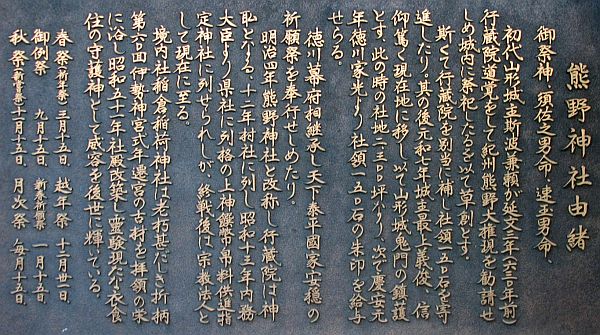 熊野神社由緒
御祭神、須佐之男命・速玉男命、
初代山形城主斯波兼頼が延文三年(六三〇年前)
行蔵院道覚をして紀州熊野大権現を勧請せ
しめ城内に祭祀したるを以て草創とす。
斯くて行蔵院を別当に補し社領一五〇石を寄
進したり。其の後元和七年城主最上義俊、信
仰篤く現在地に移し、以て山形城鬼門の鎮護
とす、此の時の社地一三〇〇坪なり、次で慶安元
年徳川家光より社領一五〇石の朱印を給与
せらる。
徳川幕府相継承し天下泰平國家安穏の
祈願祭を奉行せしめたり。
明治四年熊野神社と改称し行蔵院は神
昭となる、十二年村社に列し昭和十三年内務
大臣より県社に列格の上神饌幣帛料供進指
定神社に列せられしが、終戦後は宗教法人と
して現在に至る。
境内社稲倉稲荷神社は老朽甚だしき折柄
第六〇回伊勢神宮式年遷宮の古材を拝領の栄
に浴し昭和五十一年社殿改築し霊験現たか衣食
住の守護神として威容を後世に輝いている。
春祭(祈年祭)三月十五日、越年祭 十二月卅一日
御例祭 九月十五日、新春祈願祭 一月十五日
秋祭(新嘗祭)十一月十五日、月次祭 毎月十五日、